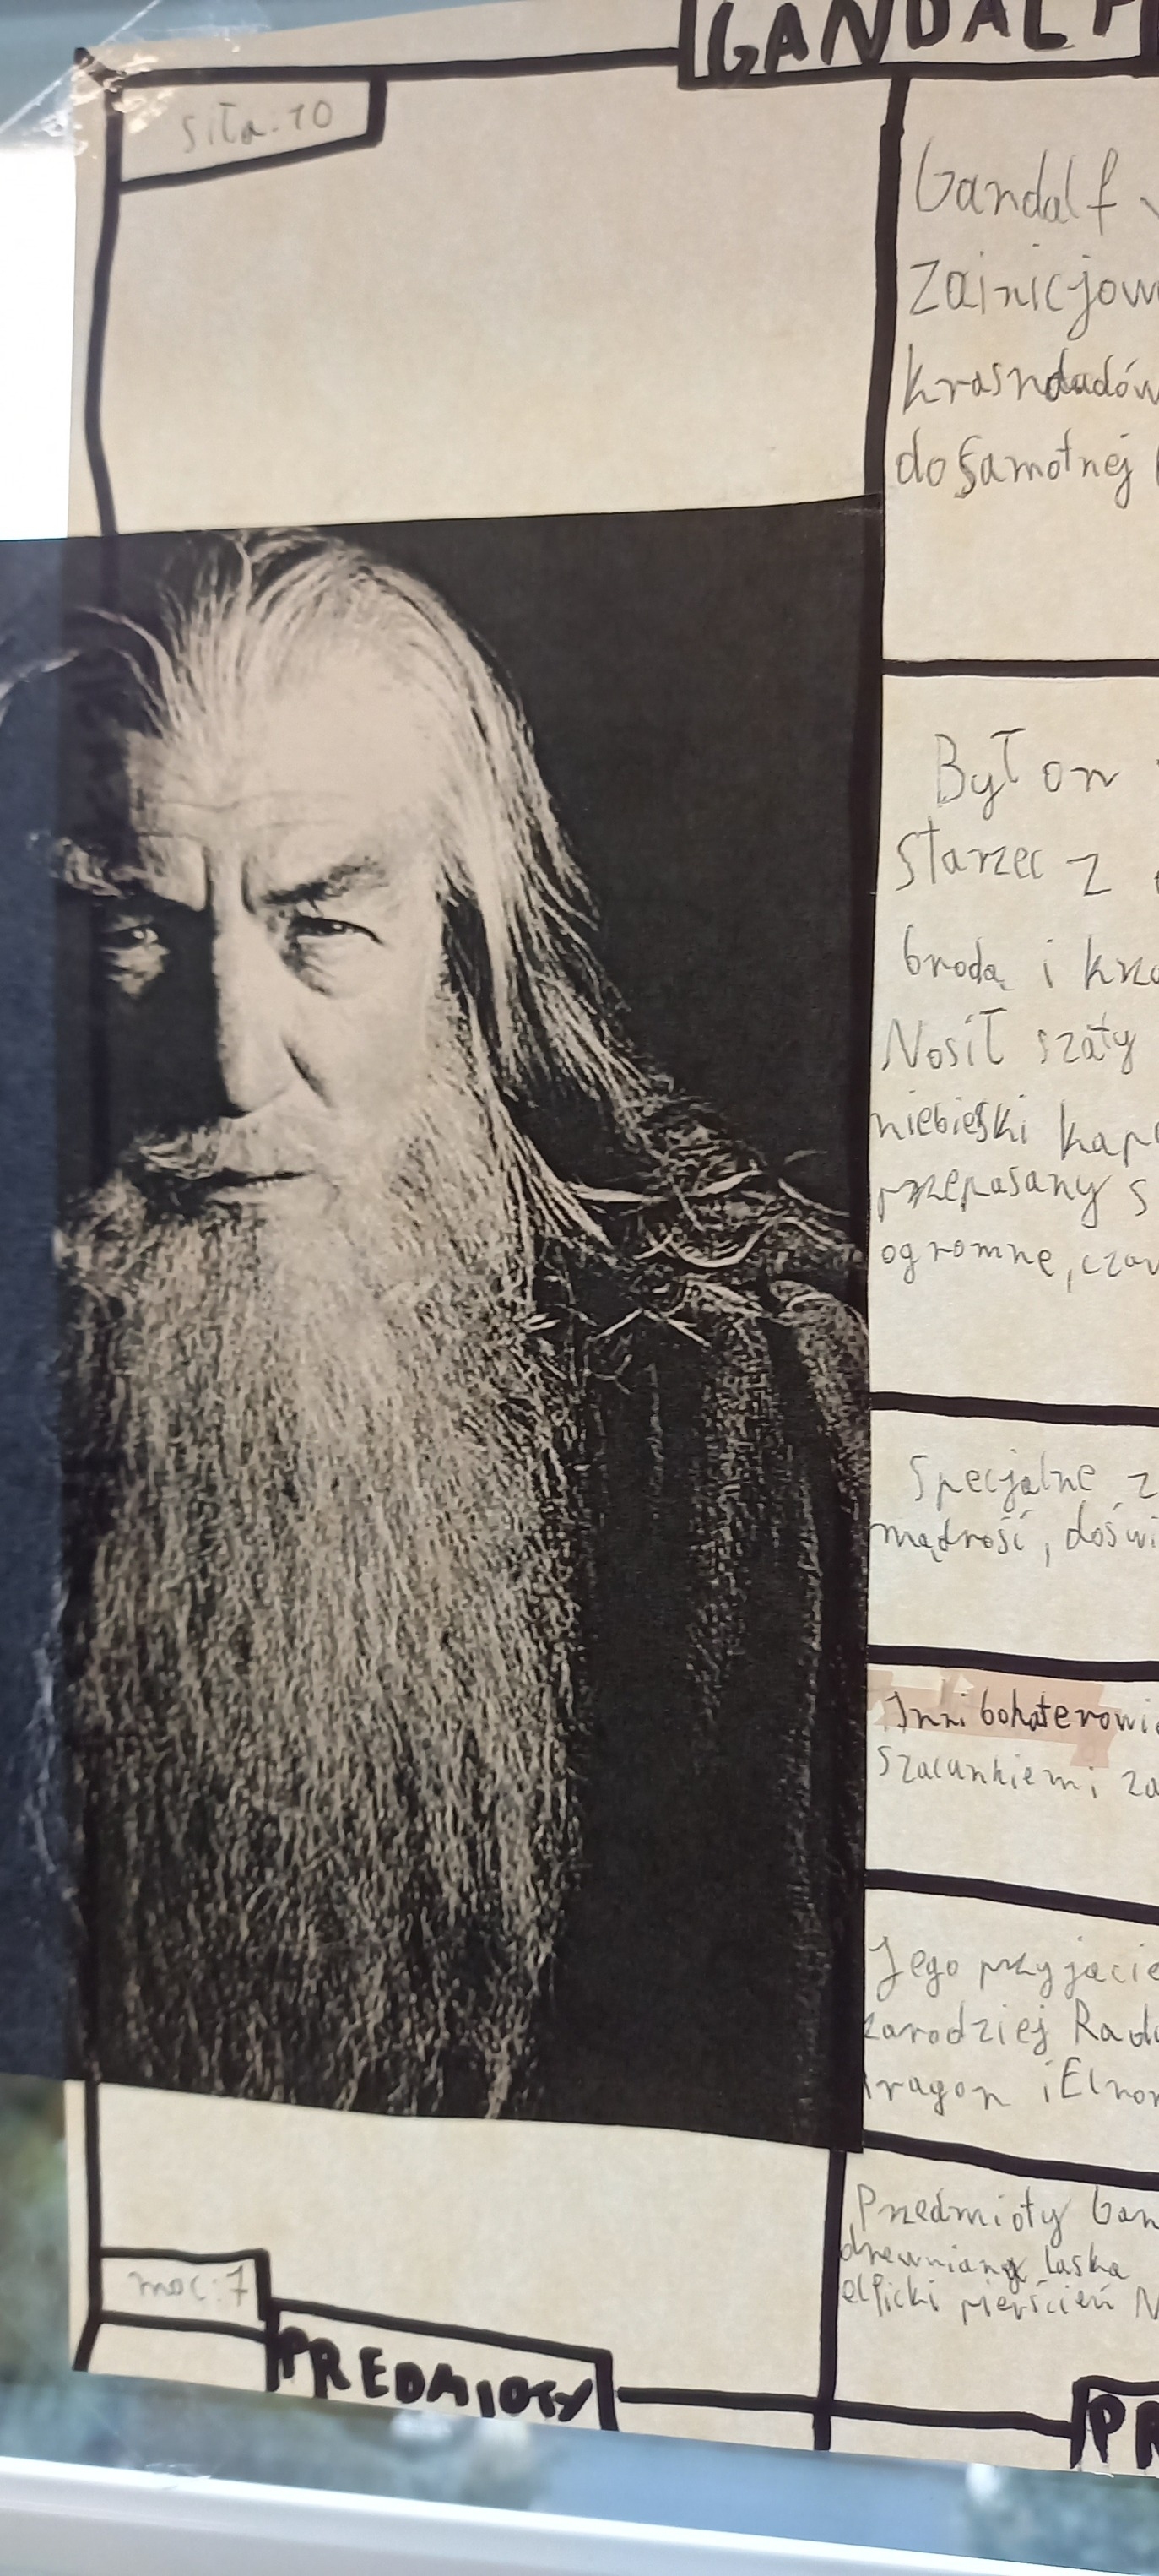 GANDALF
siła: 10
Gandalf
Zainicjow
krasnoludów
do Samotnej
Był on
starzec z
brodą i krza
Nosił szaty
niebieski kape
przepasany s
ogromne, czar
Specjalne z
mądrość, doświ
Inni bohaterowie
szacunkiem i za
Jego przyjacie
czarodziej Rada
Aragon i Elron
Przedmioty Gan
drewniana laska
elficki pierścień N
moc: 7
PREDMIOTY
PR